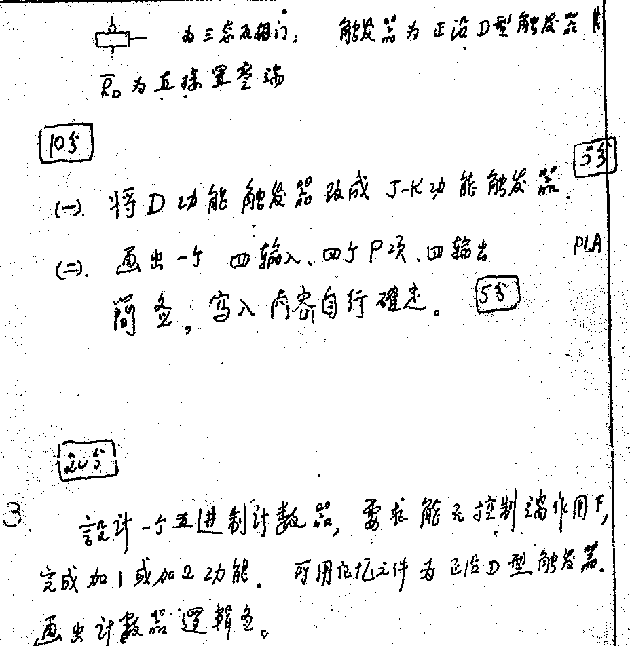 为三态反相门； 触发器为正沿D型触发器
R̅D为直接置零端
10分
(一). 将D功能触发器改成J-K功能触发器. 5分
(二). 画出一个四输入、四个P项、四输出 PLA
简图，写入内容自行确定。 5分
20分
3. 設计一个五进制计数器，要求能在控制端作用下，
完成加1或加2功能. 可用记忆元件为正沿D型触发器.
画出计数器逻辑图。